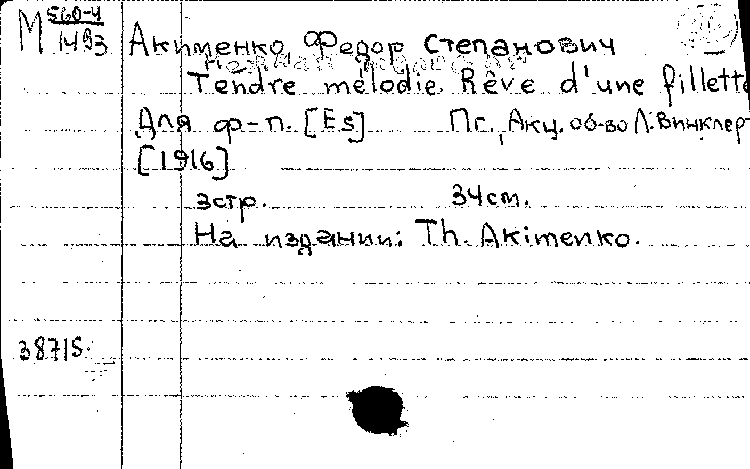 М 560-4
1493
Акименко, Федор Степанович
Tendre mélodie. Rêve d'une fillette
Для ф-п. [Es] Пг., Акц. об-во Л. Винклер
[1916]
3стр. 34см.
На издании: Th. Akimenko.
38715.